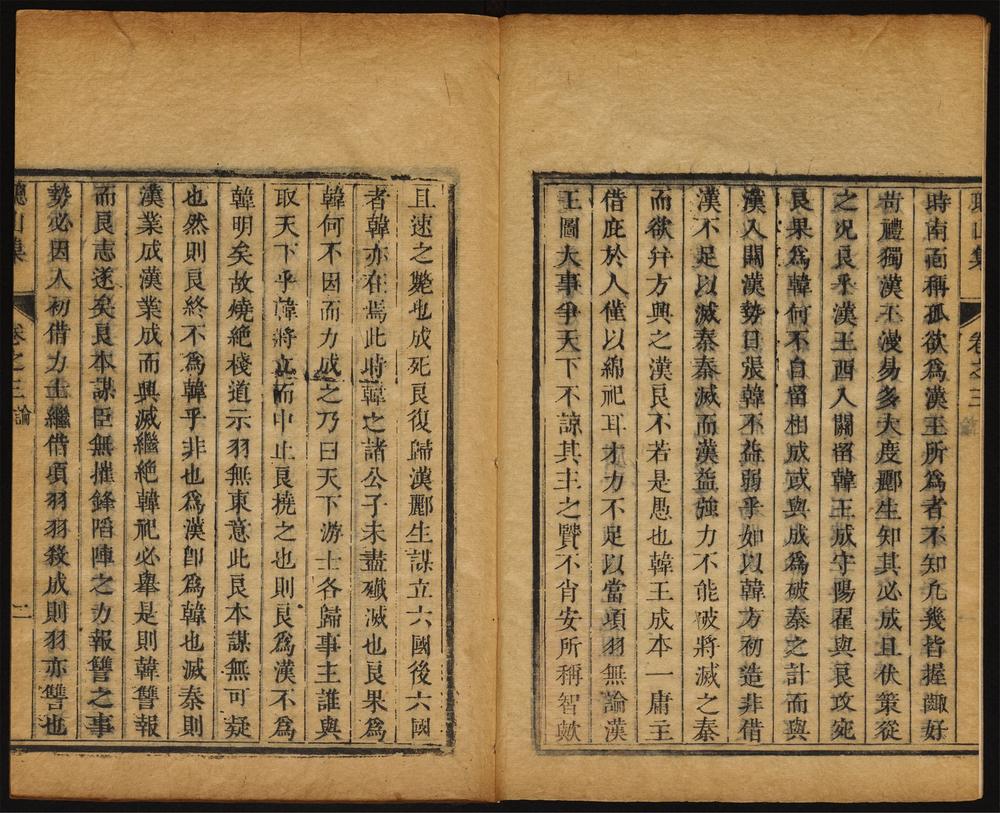 聰山集 卷之三
時南面稱孤欲爲漢王所爲者不知凡幾皆握齱好
苛禮獨漢王漫易多大度酈生知其必成且伏策從
之况良乎漢王西入關留韓王成守陽翟與良攻宛
良果爲韓何不自留相成或與成爲破秦之計而與
漢入關漢勢日張韓不益弱乎如以韓方初造非借
漢不足以滅秦秦滅而漢益強力不能破將滅之秦
而欲弁方興之漢良不若是愚也韓王成本一庸主
借庇於人僅以綿祀耳才力不足以當項羽無論漢
王圖大事爭天下不諒其主之賢不肖安所稱智歟
且速之斃也成死良復歸漢酈生謀立六國後六國
者韓亦在焉此時韓之諸公子未盡殲滅也良果爲
韓何不因而力成之乃曰天下游士各歸事主誰與
取天下乎韓將立而中止良撓之也則良爲漢不爲
韓明矣故燒絕棧道示羽無東意此良本謀無可疑
也然則良終不爲韓乎非也爲漢卽爲韓也滅秦則
漢業成漢業成而興滅繼絕韓祀必舉是則韓讐報
而良志遂矣良本謀臣無摧鋒陷陣之力報讐之事
勢必因人初借力士繼借項羽羽殺成則羽亦讐也
聰山集 卷之三 論 二